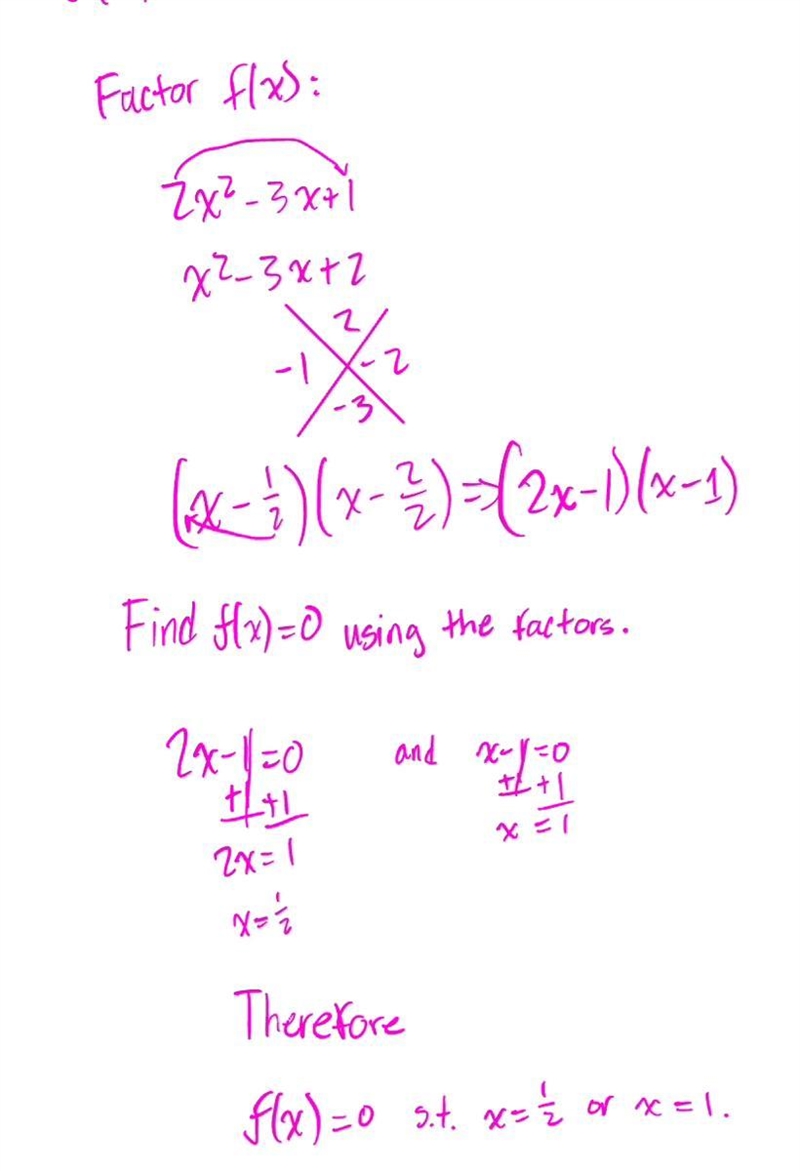 Factor f(x):
2x²-3x+1
x²-3x+2
2
-1 -2
-3
(x-1/2)(x-2/2)⇒(2x-1)(x-1)
Find f(x)=0 using the factors.
2x-1=0 and x-1=0
+1 +1 +1 +1
2x=1 x=1
x=1/2
Therefore
f(x)=0 s.t. x=1/2 or x=1.